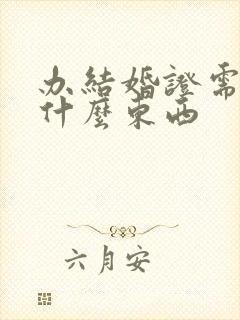 办結婚證需
什麼東西
六月安